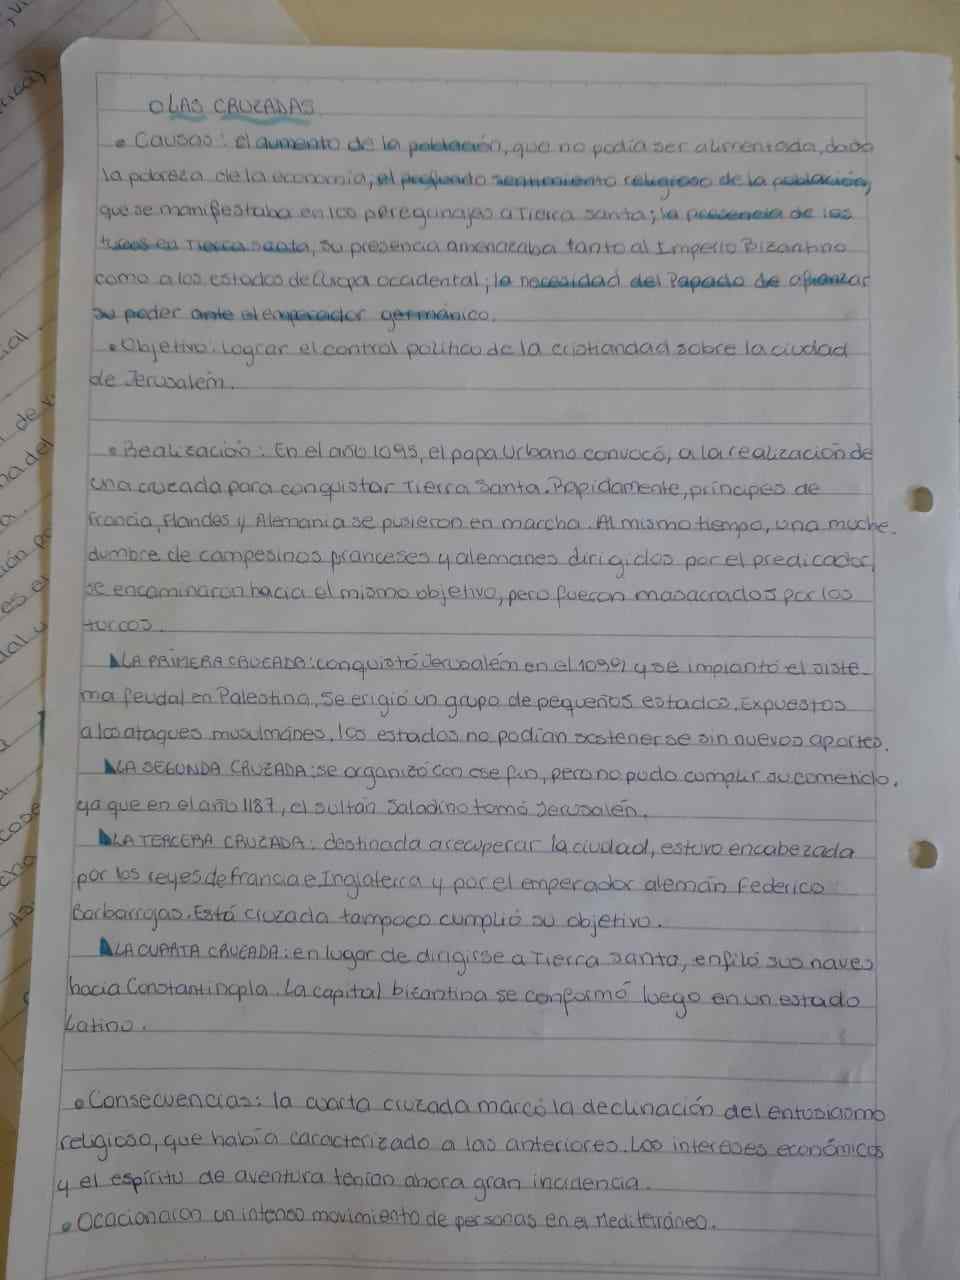 ○LAS CRUZADAS
• Causas: el aumento de la población, que no podía ser alimentada, dada
la pobreza de la economia; el profundo sentimiento religioso de la población,
que se manifestaba en los peregrinajes a Tierra santa; la precencia de los
turcos en Tierra santa, su presencia amenazaba tanto al Imperio Bizantino
como a los estados de Europa occidental; la necesidad del Papado de afianzar
su poder ante el emperador germánico.
• Objetivo: Lograr el control político de la cristiandad sobre la ciudad
de Jerusalém.
• Realización: En el año 1095, el papa Urbano convocó, a la realización de
una cruzada para conquistar Tierra Santa. Rapidamente, príncipes de
Francia, Flandes y Alemania se pusieron en marcha. Al mismo tiempo, una muche-
dumbre de campesinos franceses y alemanes dirigidos por el predicador,
se encaminaron hacia el mismo objetivo, pero fueron masacrados por los
turcos.
LA PRIMERA CRUZADA: conquistó Jerusaleén en el 1099 y se implantó el siste-
ma feudal en Palestina, se erigió un grupo de pequeños estados. Expuestos
a los ataques musulmánes, los estados no podían sostenerse sin nuevos aportes.
LA SEGUNDA CRUZADA: se organizó con ese fin, pero no pudo cumplir su cometido,
ya que en el año 1187, el sultán Saladino tomó Jerusalén.
LA TERCERA CRUZADA: destinada a recuperar la ciudad, estuvo encabezada
por los reyes de francia e Inglaterra y por el emperador alemán Federico
Barbarrojas. Está cruzada tampoco cumplió su objetivo.
LA CUARTA CRUZADA: en lugar de dirigirse a Tierra Santa, enfiló sus naves
hacia Constantinopla. La capital bizantina se conformó luego en un estado
Latino.
• Consecuencias: la cuarta cruzada marcó la declinación del entusiasmo
religioso, que había caracterizado a las anteriores. Los intereses económicos
y el espíritu de aventura tenían ahora gran incidencia.
• Ocacionaron un intenso movimiento de personas en el Mediterráneo.